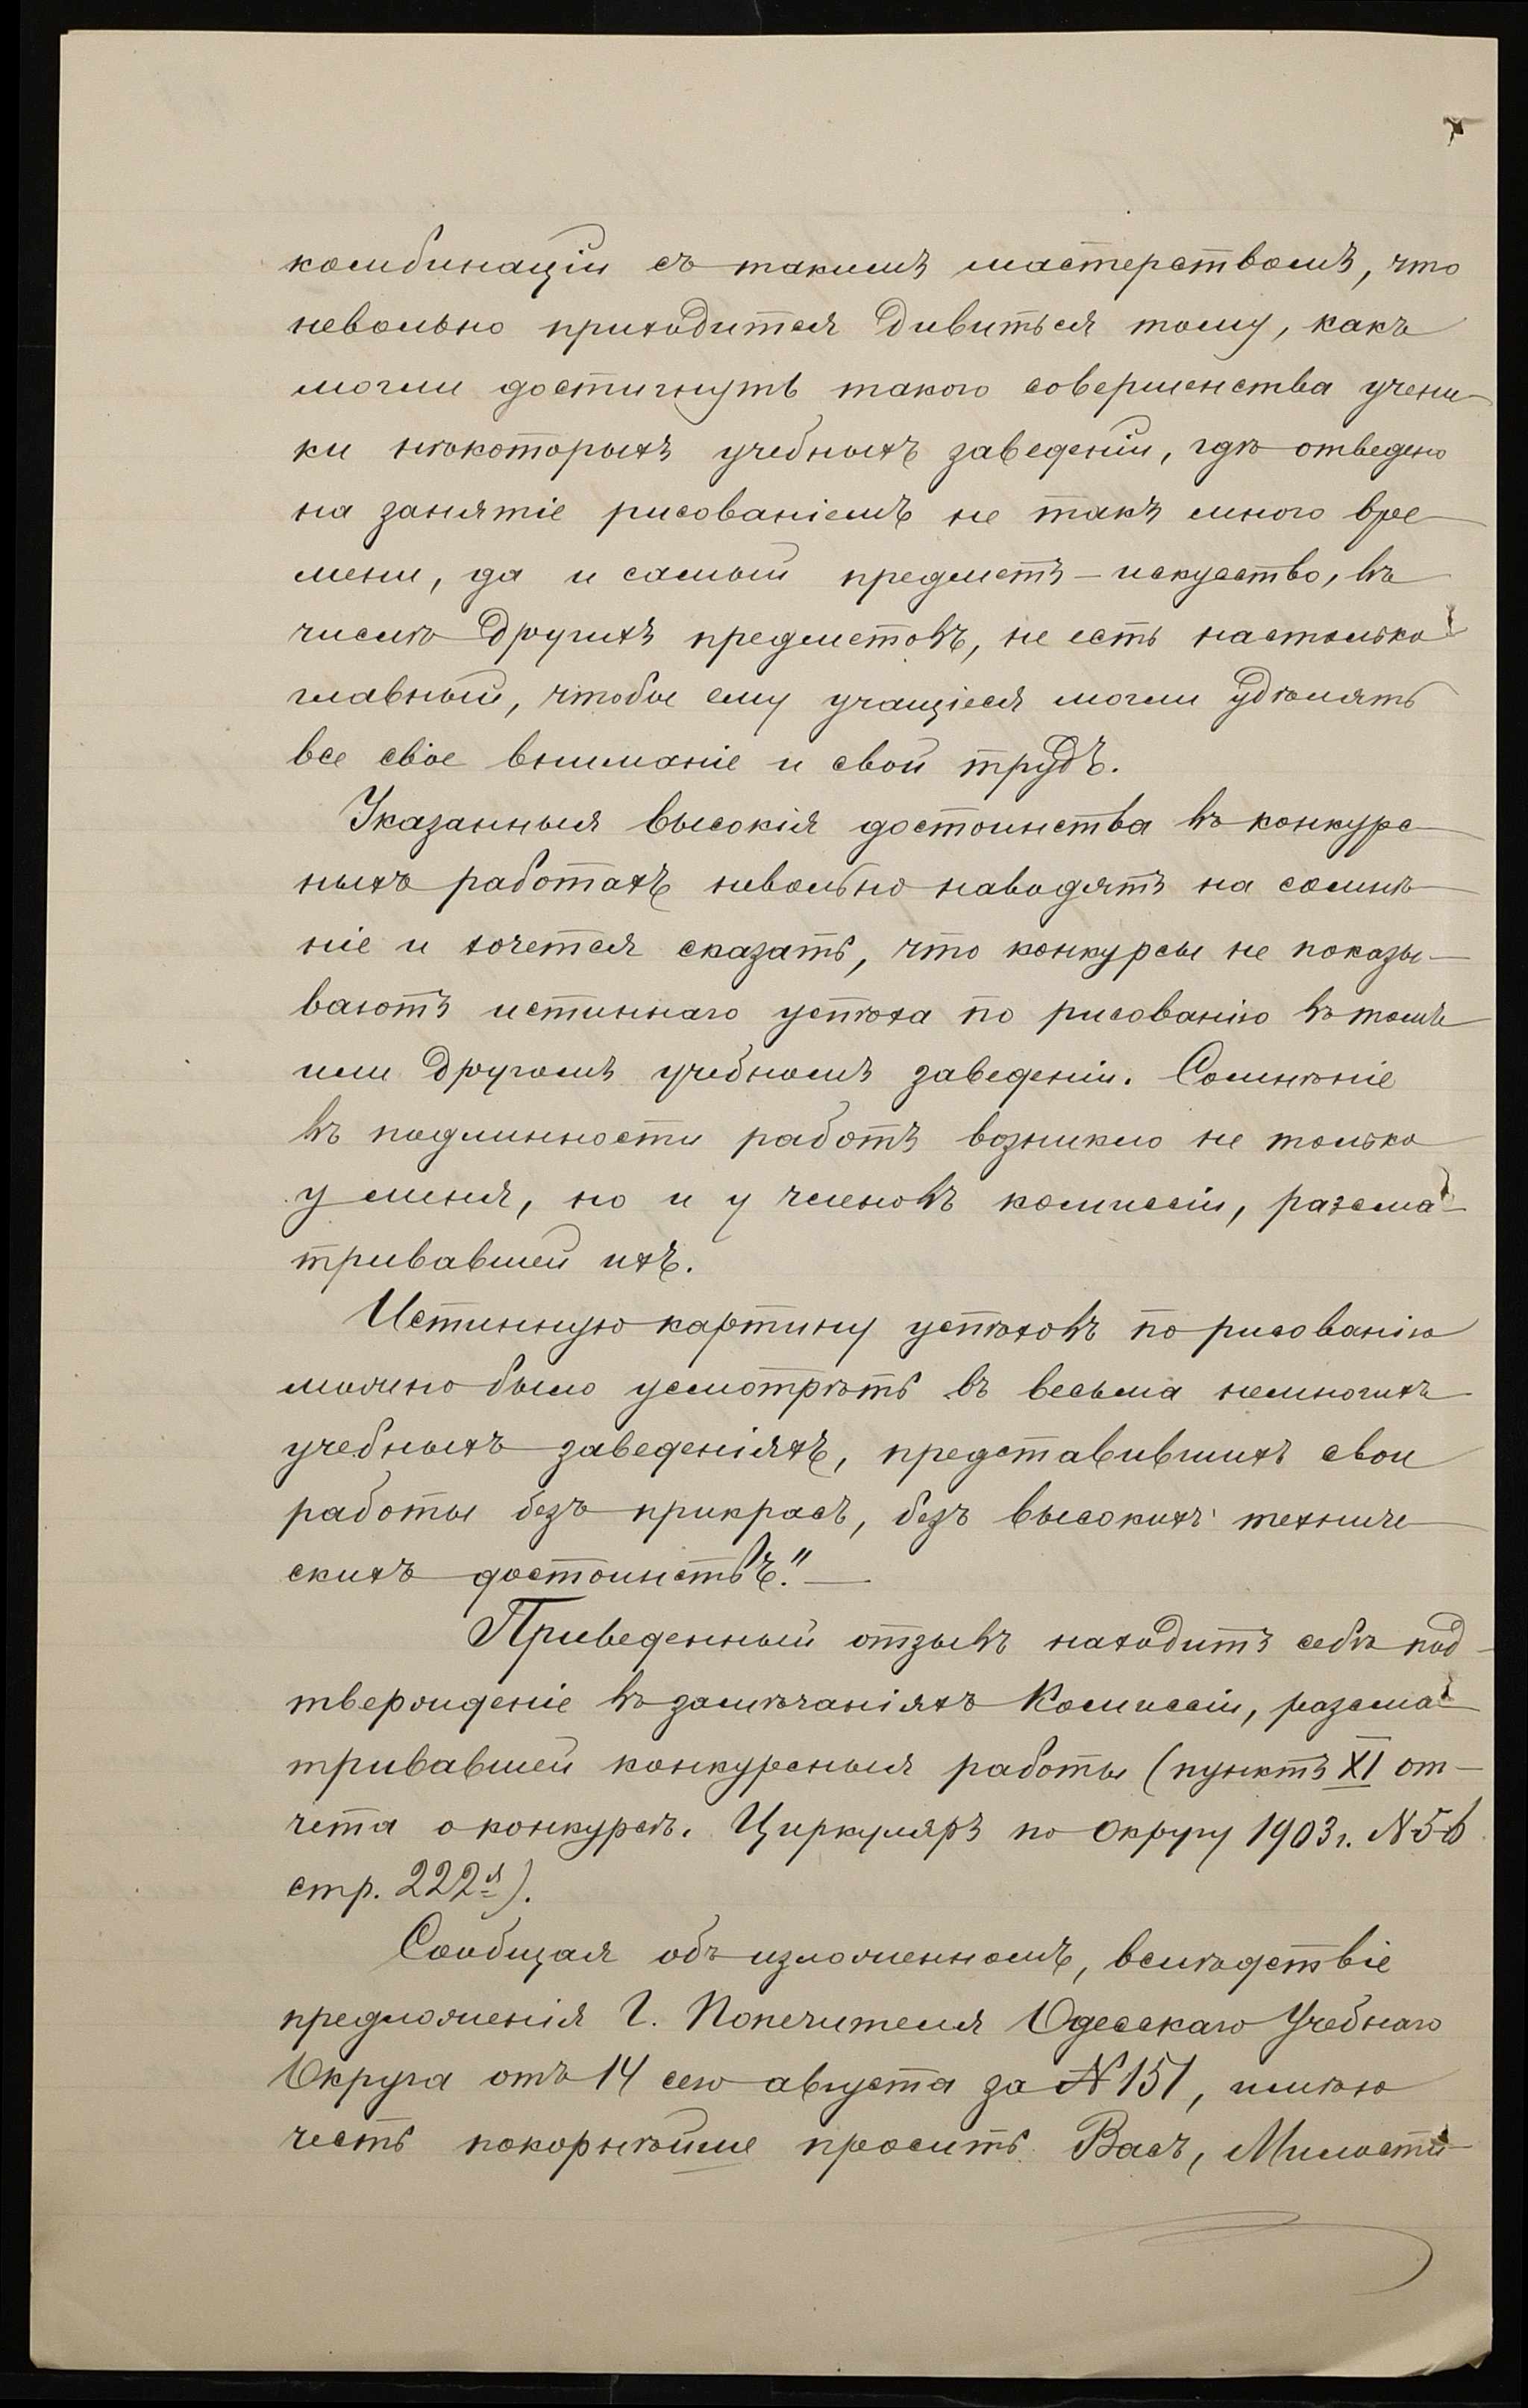 комбинаціи съ такимъ мастерствомъ, что
невольно приходится дивиться тому, какъ
могли достигнуть такого совершенства учени-
ки нѣкоторыхъ учебныхъ заведеній, гдѣ отведено
на занятіе рисованіемъ не такъ много вре-
мени, да и самый предметъ - искусство, въ
числѣ другихъ предметовъ, не есть настолько
главный, чтобы ему учащіеся могли удѣлять
все свое вниманіе и свой трудъ.
Указанныя высокія достоинства въ конкурс-
ныхъ работахъ невольно наводятъ на сомнѣ-
ніе и хочется сказать, что конкурсы не показы-
ваютъ истиннаго успѣха по рисованію въ томъ
или другомъ учебномъ заведеніи. Сомнѣніе
въ подлинности работъ возникло не только
у меня, но и у членовъ комиссіи, разсма-
тривавшей ихъ.
Истинную картину успѣховъ по рисованію
можно было усмотрѣть въ весьма немногихъ
учебныхъ заведеніяхъ, представившихъ свои
работы безъ прикрасъ, безъ высокихъ техниче-
скихъ достоинствъ." —
Приведенный отзывъ находитъ себѣ под-
твержденіе въ замѣчаніяхъ Комиссіи, разсма-
тривавшей конкурсныя работы (пунктъ XI от-
чета о конкурсѣ. Циркуляръ по Округу 1903 г. № 5-6
стр. 222я).
Сообщая объ изложенномъ, вслѣдствіе
предложенія Г. Попечителя Одесскаго Учебнаго
Округа отъ 14 сего августа за № 151, имѣю
честь покорнѣйше просить Васъ, Милости-